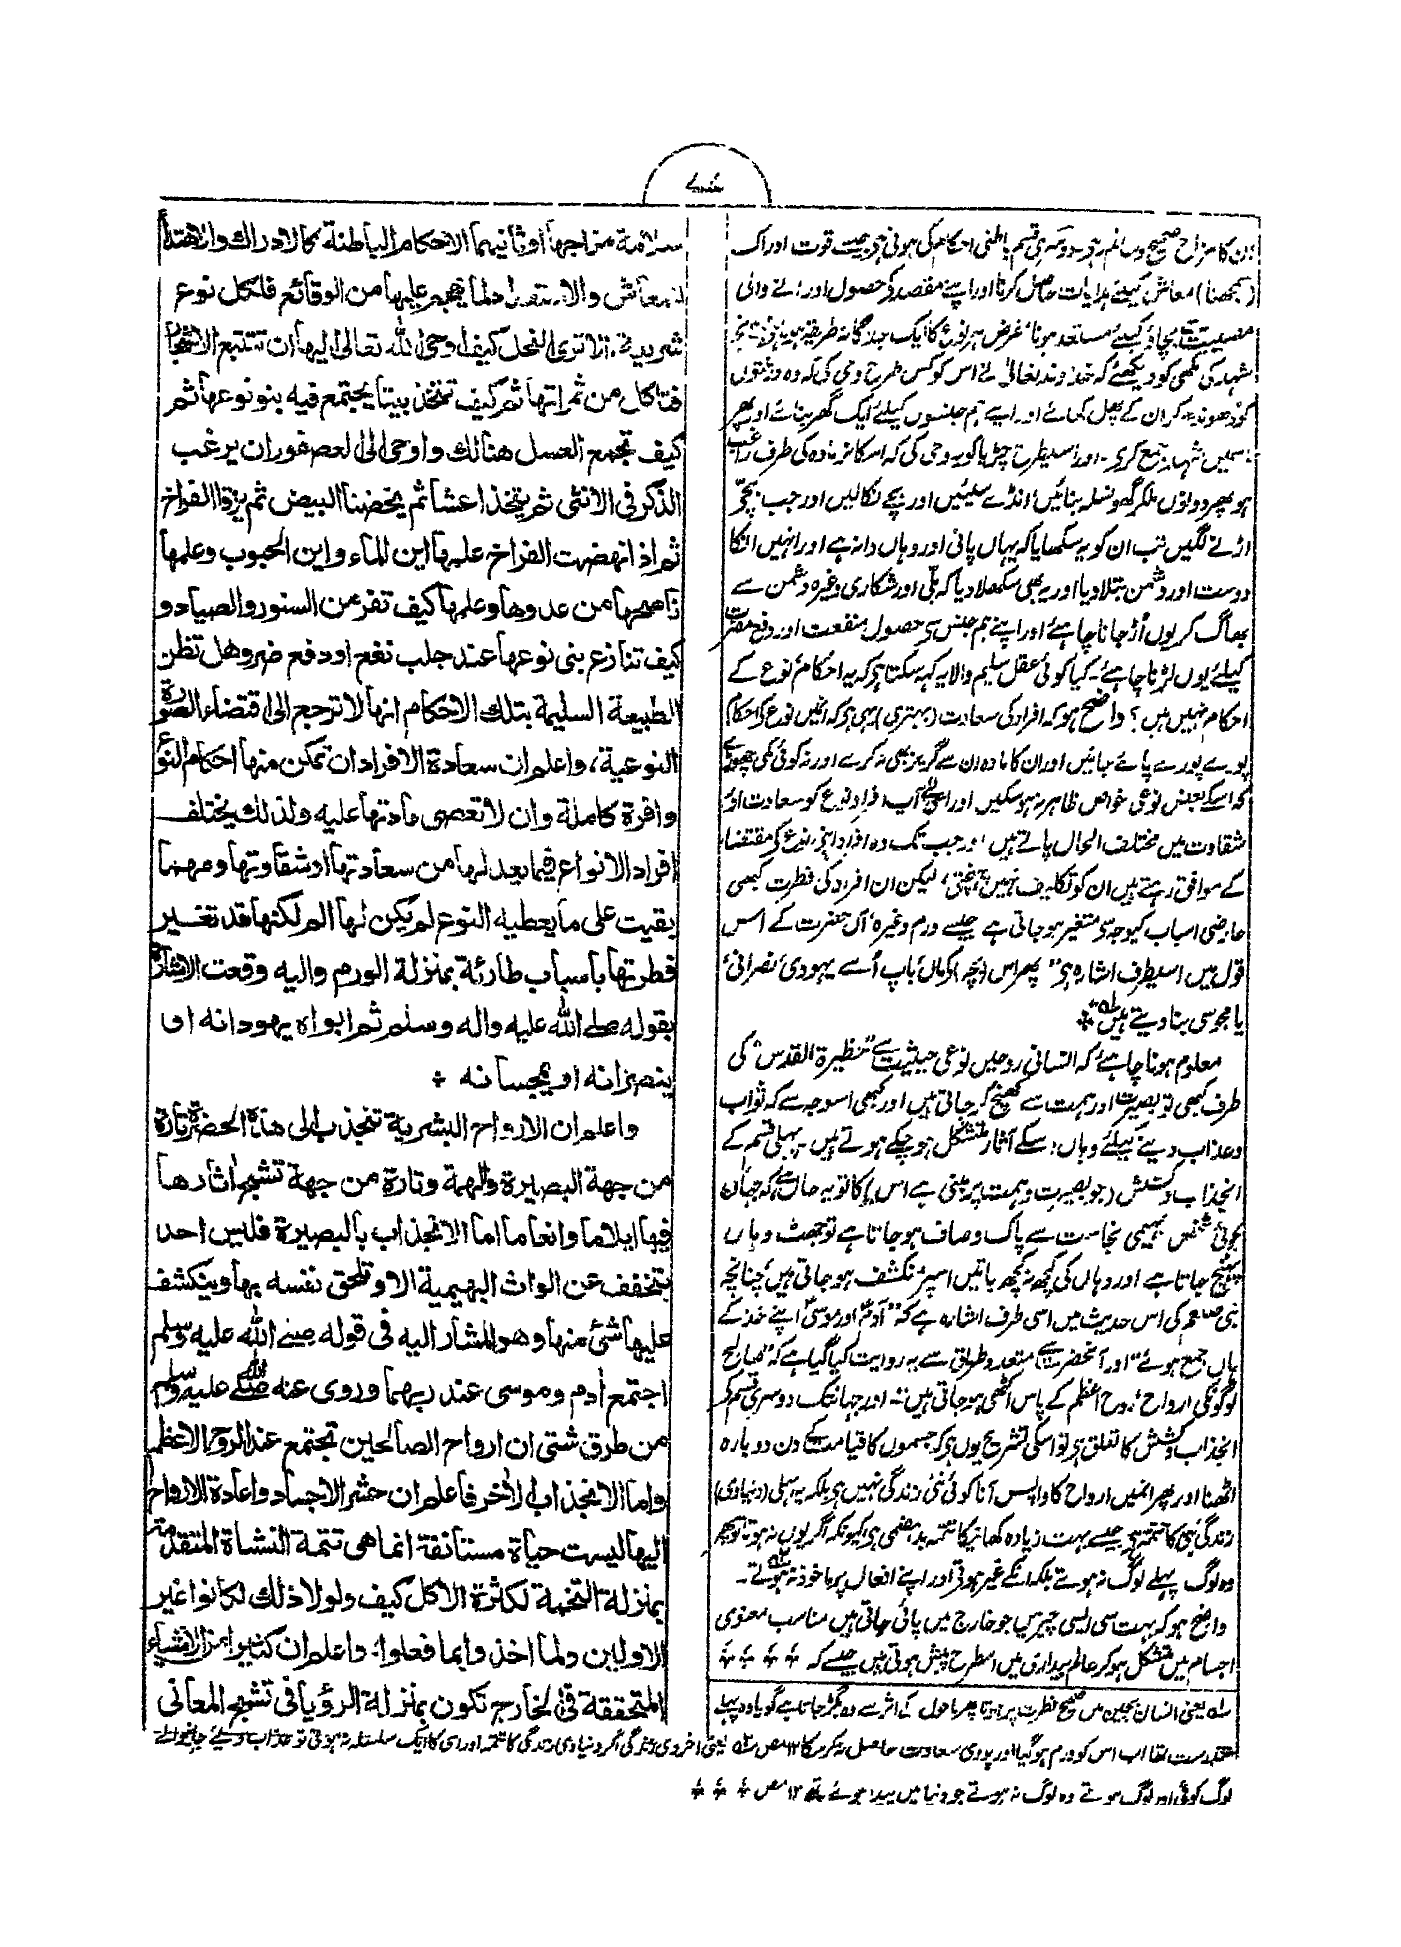 ان کا مزاج صحیح وسالم رہے دوسری قسم باطنی احکام کی ہوتی ہے جیسے قوت ادراک
(سمجھنا) معاش کیلئے ہدایات حاصل کرنا اور اپنے مقصد کے حصول اور آنے والی
مصیبت سے بچاؤ کیلئے مستعد ہونا، غرض ہر نوع کا ایک جداگانہ طریقہ ہوتا ہے
شہد کی مکھی کو دیکھئے کہ خداوند تعالیٰ نے اس کو کس طرح وحی کی کہ وہ درختوں
کو ڈھونڈھ کر ان کے پھل کھائے اور اپنے ہم جنسوں کیلئے ایک گھر بنائے اور پھر
اسمیں شہد جمع کرے۔ اور اسیطرح چڑیا کو یہ وحی کی کہ اسکا نر مادہ کی طرف راغب
ہو پھر دونوں ملکر گھونسلہ بنائیں، انڈے سیئیں اور بچے نکالیں اور جب بچے
اڑنے لگیں تب ان کو یہ سکھایا کہ یہاں پانی اور وہاں دانہ ہے اور انہیں انکا
دوست اور دشمن بتلادیا اور یہ بھی سکھلا دیا کہ بلّی اور شکاری وغیرہ دشمن سے
بھاگ کر یوں اُڑ جانا چاہئے اور اپنے ہم جنس سے حصول منفعت اور دفع مضرت
کیلئے یوں لڑنا چاہئے۔ کیا کوئی عقل سلیم والا یہ کہہ سکتا ہے کہ یہ احکام نوع کے
احکام نہیں ہیں؟ واضح ہو کہ افراد کی سعادت (بہتری) یہی ہے کہ انمیں نوع کے احکام
پورے پورے پائے جائیں اور ان کا مادہ ان سے گریز بھی نہ کرے اور نہ کوئی کمی چھوڑے
کہ اسکے بعض نوعی خواص ظاہر نہ ہو سکیں اور اسی لئے آپ افراد نوع کو سعادت اور
شقاوت میں مختلف الحال پاتے ہیں، اور جب تک وہ افراد اپنی نوع کے مقتضاء
کے موافق رہتے ہیں ان کو تکالیف نہیں پہنچتی، لیکن ان افراد کی فطرت کبھی
عارضی اسباب کیوجہ سے متغیر ہو جاتی ہے جیسے ورم وغیرہ، آں حضرت کے اس
قول میں اسیطرف اشارہ ہے "پھر اس بچہ کو ماں باپ اُسے یہودی، نصرانی،
یا مجوسی بنا دیتے ہیں"
معلوم ہونا چاہئے کہ انسانی روحیں نوعی حیثیت سے "حظیرة القدس" کی
طرف کبھی تو بصیرت اور ہمت سے کھنچ کر جاتی ہیں اور کبھی اسوجہ سے کہ ثواب
وعذاب دینے کیلئے وہاں اسکے آثار متشکل ہو چکے ہوتے ہیں۔ پہلی قسم کے
انجذاب وکشش (جو بصیرت وہمت پر مبنی ہے اس) کا تو یہ حال ہے کہ جہاں
کوئی شخص بہیمی نجاست سے پاک وصاف ہو جاتا ہے تو جھٹ وہاں
پہنچ جاتا ہے اور وہاں کی کچھ نہ کچھ باتیں اسپر منکشف ہو جاتی ہیں، چنانچہ
نبی صلعم کی اس حدیث میں اسی طرف اشارہ ہے کہ "آدمؑ اور موسیٰؑ اپنے خدا کے
ہاں جمع ہوئے" اور آنحضرت سے متعدد طریق سے یہ روایت کیا گیا ہے کہ "صالح
لوگونکی ارواح، روح اعظم کے پاس اکٹھی ہو جاتی ہیں"۔ اور جہانتک دوسری قسم کے
انجذاب وکشش کا تعلق ہے تو اسکی تشریح یوں ہے کہ جسموں کا قیامت کے دن دوبارہ
اٹھنا اور پھر انمیں ارواح کا واپس آنا کوئی نئی زندگی نہیں ہے بلکہ یہ پہلی (دنیاوی)
زندگی ہی کا تتمہ ہے جیسے بہت زیادہ کھانیکا تتمہ بدہضمی ہے کیونکہ اگر یوں نہ ہوتا تو پھر
وہ لوگ پہلے لوگ نہ ہوتے بلکہ انکے غیر ہوتے اور اپنے افعال پر ماخوذ نہ ہوتے۔
واضح ہو کہ بہت سی ایسی چیزیں جو خارج میں پائی جاتی ہیں مناسب معنوی
اجسام میں متشکل ہو کر عالم بیداری میں اسطرح پیش ہوتی ہیں جیسے کہ
سلامة مزاجها وثانيهما الاحكام الباطنة كالادراك والاهتداء
للمعاش والاستعداد لما يهجم عليها من الوقائع فلكل نوع
شريعة، الا ترى النحل كيف اوحى الله تعالى اليها ان تتتبع الاشجار
فتاكل من ثمراتها ثم كيف تتخذ بيتا يجتمع فيه بنو نوعها ثم
كيف تجمع العسل هنالك واوحى الى العصفور ان يرغب
الذكر فى الانثى ثم يتخذا عشا ثم يحضنا البيض ثم يزقا الفراخ
ثم اذا نهضت الفراخ علمها اين الماء واين الحبوب وعلمها
ناصحها من عدوها وعلمها كيف تفر من السنور والصياد و
كيف تنازع بنى نوعها عند جلب نفع او دفع ضر وهل تظن
الطبيعة السليمة بتلك الاحكام انها لا ترجع الى اقتضاء الصورة
النوعية، واعلم ان سعادة الافراد ان تمكن منها احكام النوع
وافرة كاملة وان لا تعصى مادتها عليه ولذلك يختلف
افراد الانواع فيما يعد لها من سعادتها او شقاوتها ومهما
بقيت على ما يعطيه النوع لم يكن لها الم لكنها قد تغير
فطرتها باسباب طارئة بمنزلة الورم واليه وقعت الاشارة
بقوله صلى الله عليه واله وسلم ثم ابواه يهودانه او
ينصرانه او يمجسانه
واعلم ان الارواح البشرية تنجذب الى هذه الحضرة تارة
من جهة البصيرة والهمة وتارة من جهة تشبح اثارها
فيها ايلاما وانعاما اما الانجذاب بالبصيرة فليس احد
يتخفف عن الواث البهيمية الا وتلحق نفسه بها وينكشف
عليها شئ منها وهو المشار اليه فى قوله صلى الله عليه وسلم
اجتمع ادم وموسى عند ربهما وروى عنه صلى الله عليه وسلم
من طرق شتى ان ارواح الصالحين تجتمع عند الروح الاعظم
واما الانجذاب الاخر فاعلم ان حشر الاجساد واعادة الارواح
اليها ليست حياة مستانفة انما هى تتمة النشاة المتقدمة
بمنزلة التخمة لكثرة الاكل كيف ولولا ذلك لكانوا غير
الاولين ولما اخذوا بما فعلوا، واعلم ان كثيرا من الاشياء
المتحققة فى الخارج تكون بمنزلة الرؤيا فى تشبح المعانى
یعنی انسان بچپن میں صحیح فطرت پر ہوتا پھر ماحول کے اثر سے وہ بگڑ جاتا ہے گویا وہ پہلے
تندرست تھا اب اس کو ورم ہو گیا اور پوری سعادت حاصل نہ کر سکا ۱۲ مص یعنی اخروی زندگی اگر دنیاوی زندگی کا تتمہ اور اسی کا ایک سلسلہ نہ ہوتی تو عذاب دیئے جانیوالے
لوگ کوئی اور لوگ ہوتے وہ لوگ نہ ہوتے جو دنیا میں پیدا ہوئے تھے ۱۲ مص